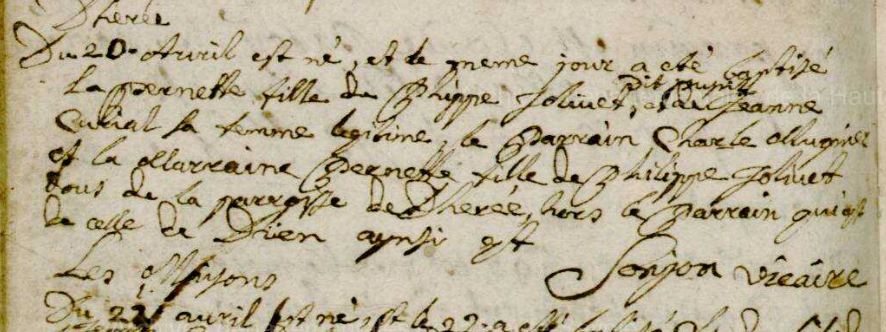 Dherée
Du 20. Avvril est né, et le meme jour a eté baptisé
La pernette fille de Phippe Jolivet, dit pupit, et de Jeanne
Curial sa femme legitime, le Parrain Charle
et la Marraine Pernette fille de Philippe Jolivet
tous de la parroisse de Dherée, hors le Parrain qui est
de celle de Dùen aynsi est
Les Sonjon vicaire
Du 22e avril est né, et le 22. a esté